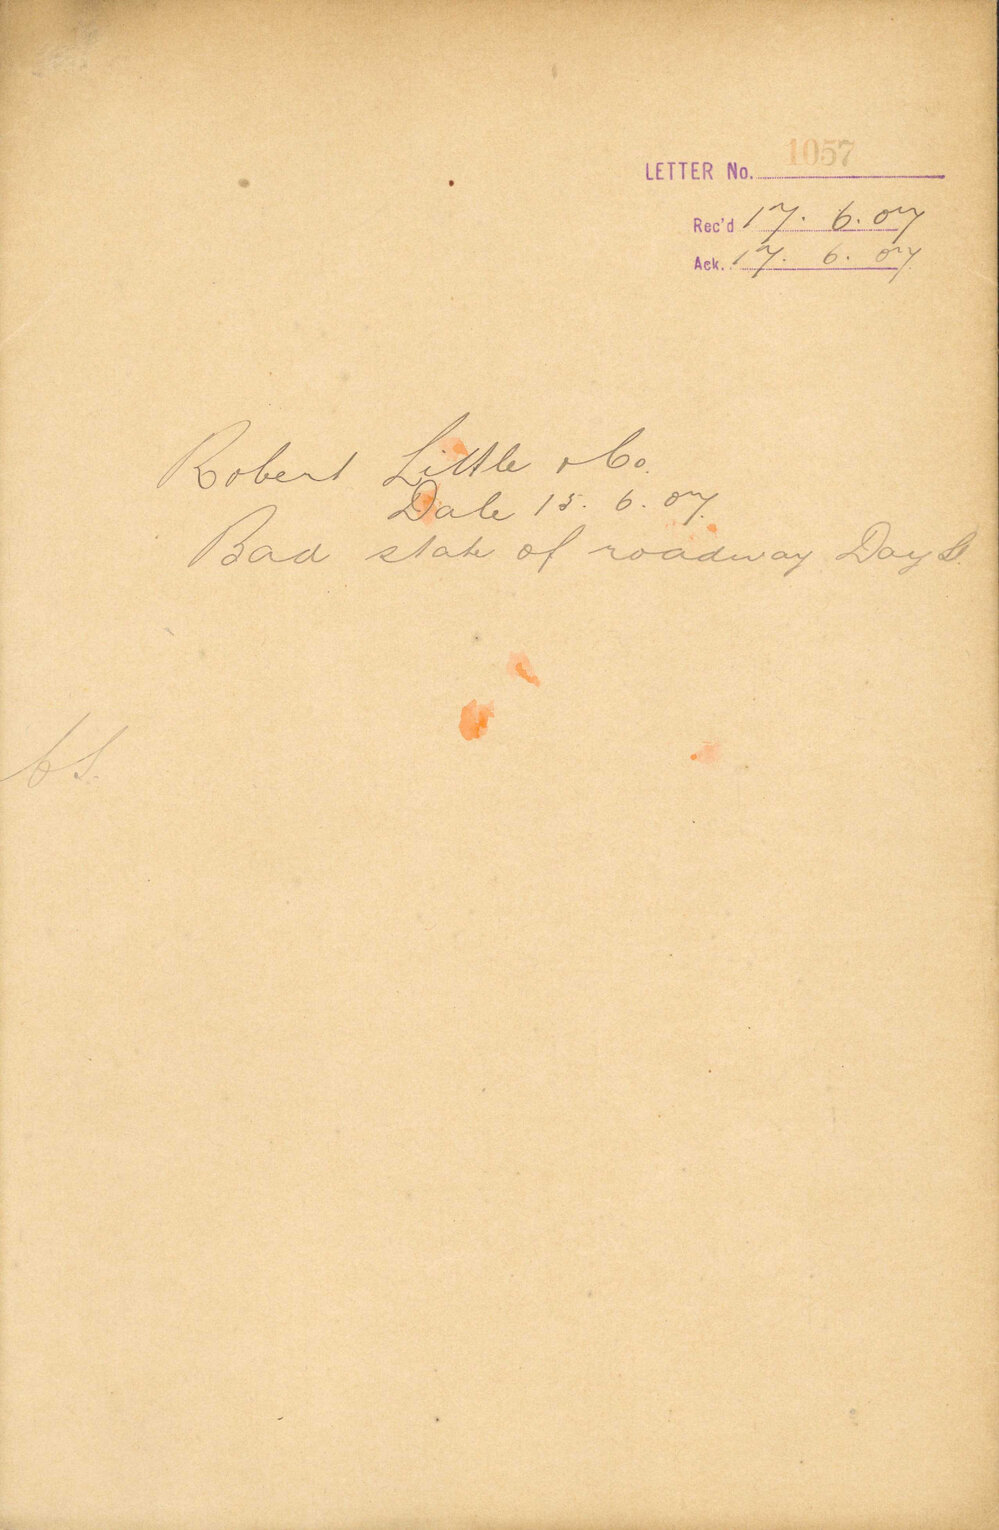 LETTER No. 1057
Rec'd 17. 6. 07
Ack. 17. 6. 07
Robert Little & Co.
Date 15. 6. 07.
Bad state of roadway Day St.